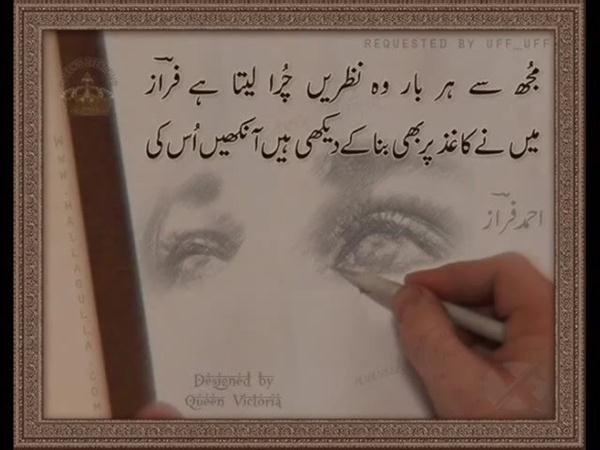 REQUESTED BY UFF_UFF
مجُھ سے ہر بار وہ نظریں چُرا لیتا ہے فراز
میں نے کاغذ پر بھی بنا کے دیکھی ہیں آنکھیں اُس کی
احمد فراز
WWW.HALLAGULLA.COM
Designed by
Queen Victoria